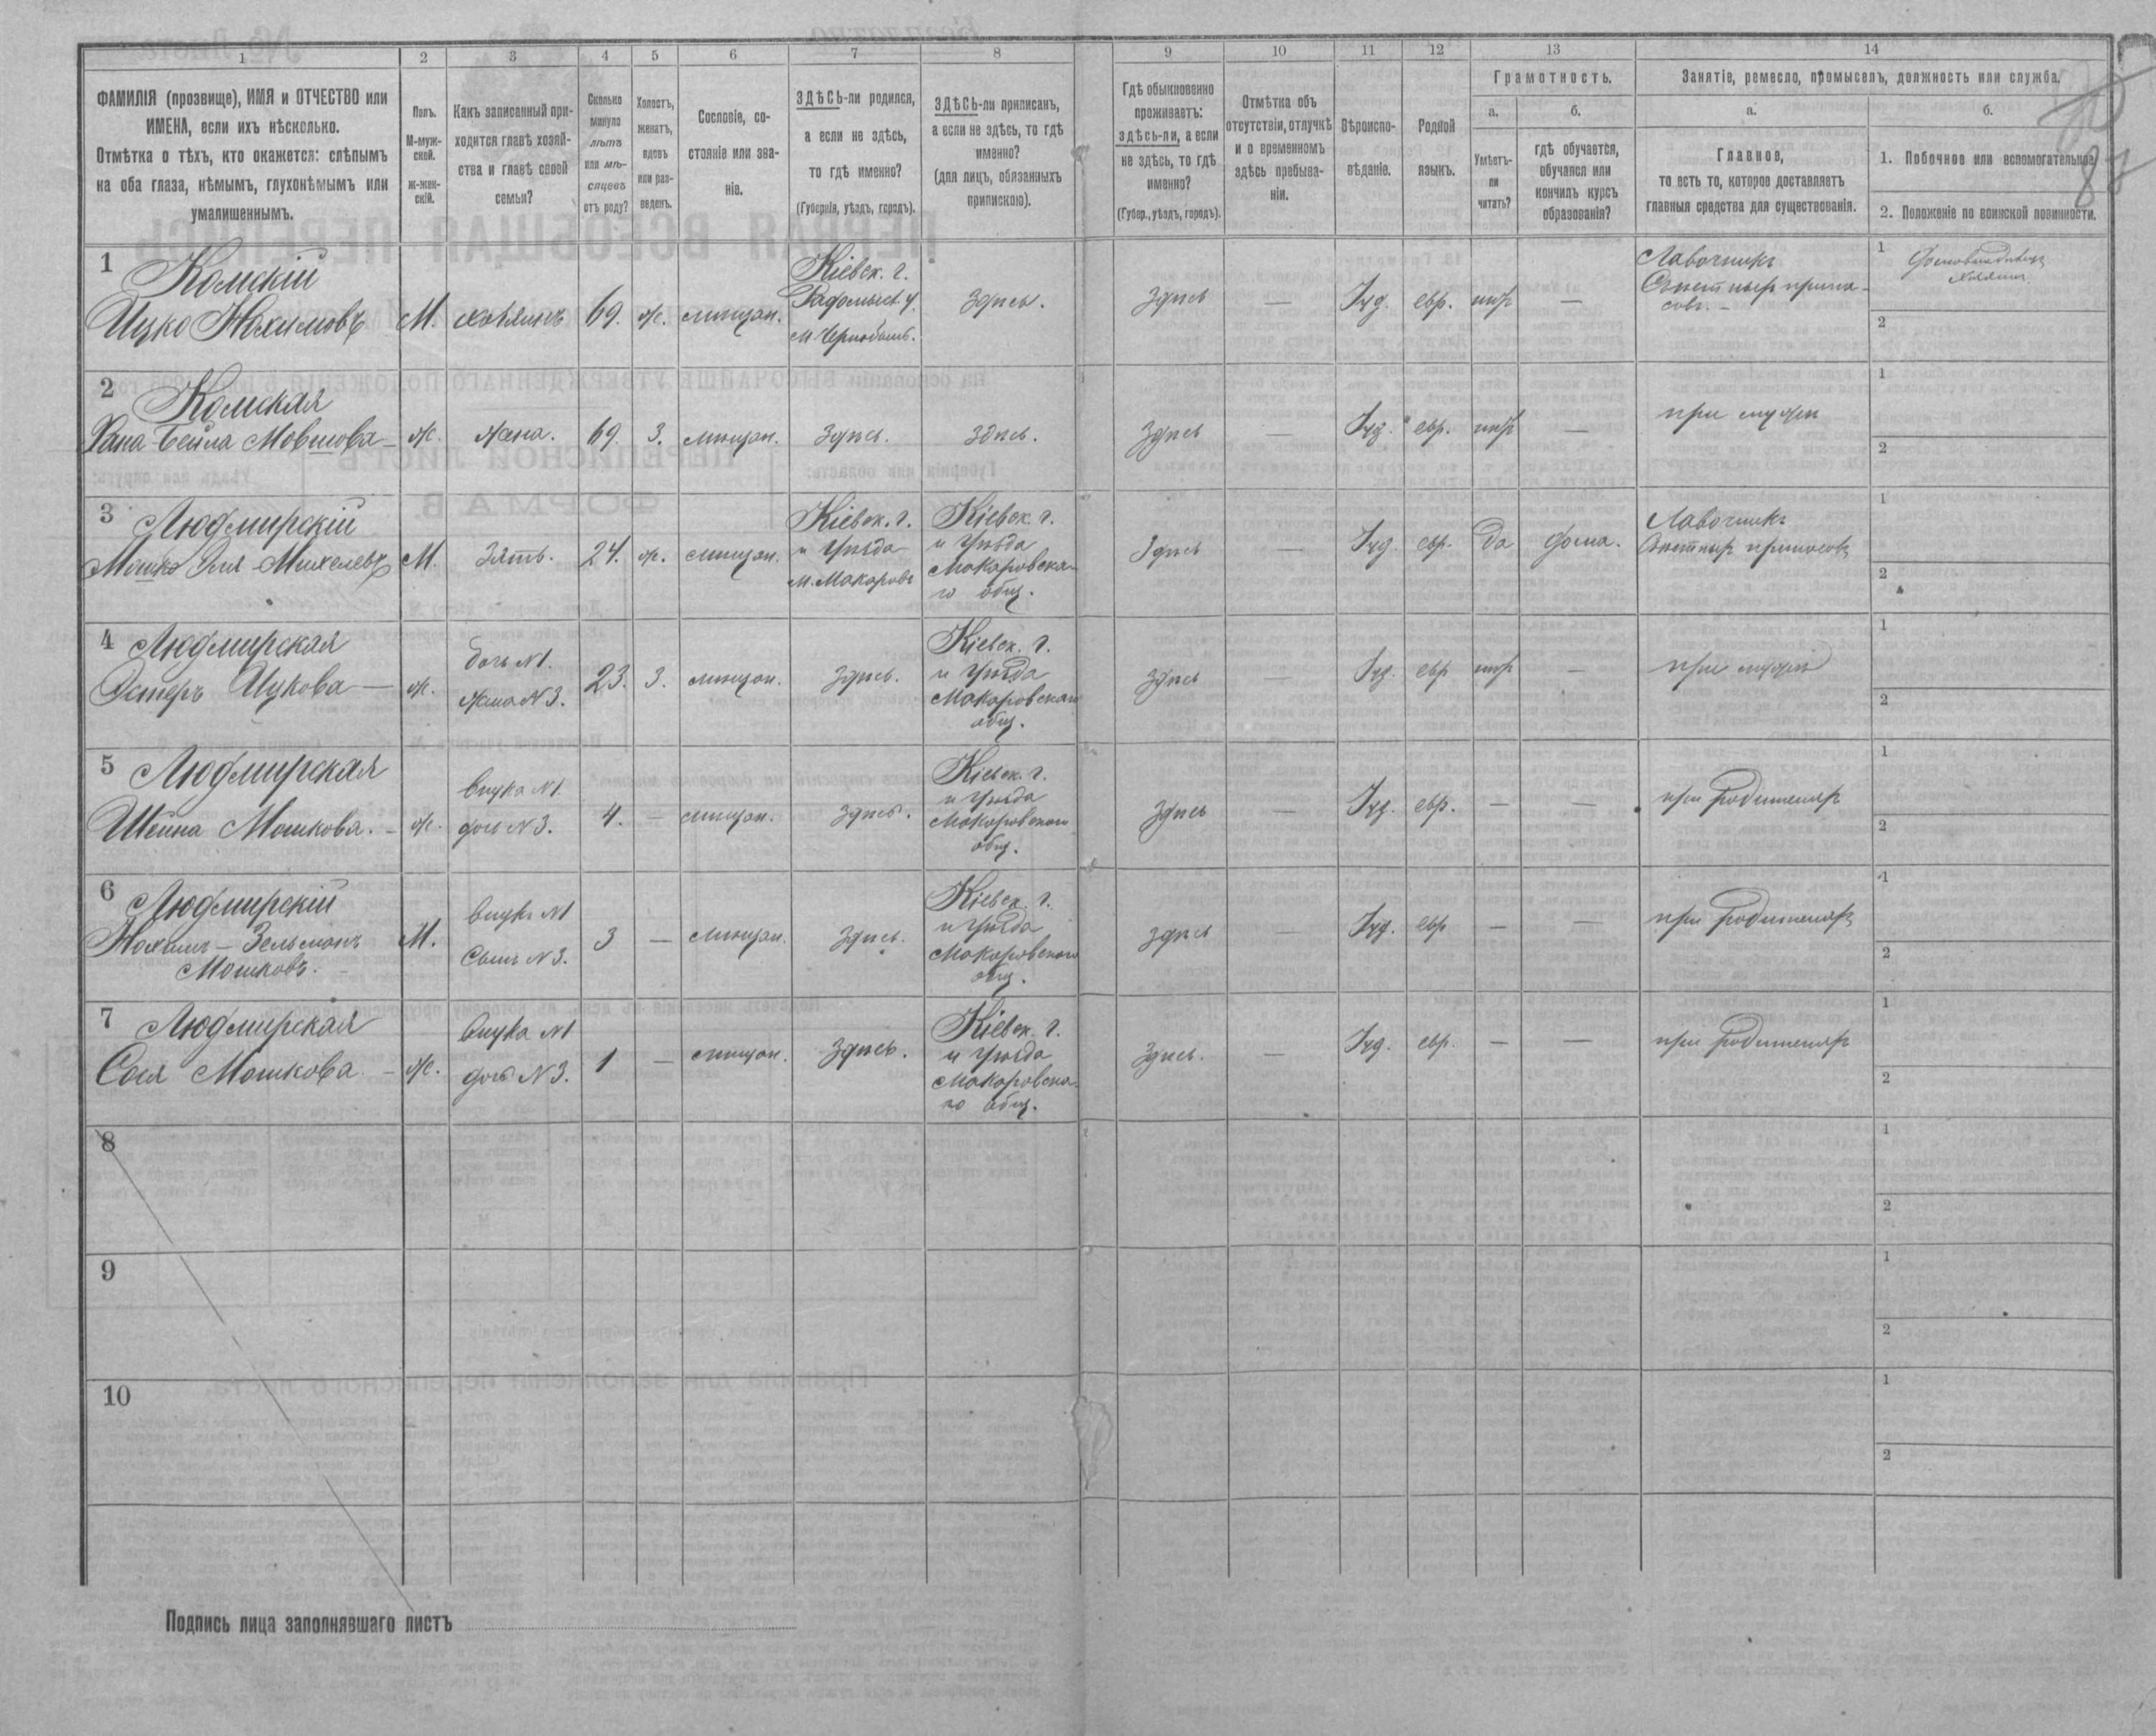 1 2 3 4 5 6 7 8 9 10 11 12 13 14
ФАМИЛІЯ (прозвище), ИМЯ и ОТЧЕСТВО или
ИМЕНА, если ихъ нѣсколько.
Отмѣтка о тѣхъ, кто окажется: слѣпымъ
на оба глаза, нѣмымъ, глухонѣмымъ или
умалишеннымъ.
Полъ.
М-муж-
ской.
Ж-жен-
скій.
Какъ записанный при-
ходится главѣ хозяй-
ства и главѣ своей
семьи?
Сколько
минуло
лѣтъ
или мѣ-
сяцевъ
отъ роду?
Холостъ,
женатъ,
вдовъ
или раз-
веденъ.
Сословіе, со-
стояніе или зва-
ніе.
ЗДѢСЬ-ли родился,
а если не здѣсь,
то гдѣ именно?
(Губернія, уѣздъ, городъ).
ЗДѢСЬ-ли приписанъ,
а если не здѣсь, то гдѣ
именно?
(для лицъ, обязанныхъ
припискою).
Гдѣ обыкновенно
проживаетъ:
здѣсь-ли, а если
не здѣсь, то гдѣ
именно?
(Губер., уѣздъ, городъ).
Отмѣтка объ
отсутствіи, отлучкѣ
и о временномъ
здѣсь пребыва-
ніи.
Вѣроиспо-
вѣданіе.
Родной
языкъ.
Грамотность.
а.
Умѣетъ-
ли
читать?
б.
гдѣ обучается,
обучался или
кончилъ курсъ
образованія?
Занятіе, ремесло, промыселъ, должность или служба.
а.
Главное,
то есть то, которое доставляетъ
главныя средства для существованія.
б.
1. Побочное или вспомогательное.
2. Положеніе по воинской повинности.
1
Комскій
Ицко Нахимовъ
М. хозяинъ 69. ж. мѣщан.
Кіевск. г.
Радомысл. у.
м. Чернобыль.
Здѣсь.
Здѣсь — Іуд. евр. нѣтъ —
Лавочникъ
Съѣстныхъ припа-
совъ. —
1
2
2
Комская
Хана-Бейла Мовшова —
ж. жена. 69. З. мѣщан. Здѣсь. Здѣсь.
Здѣсь — Іуд. евр. нѣтъ —
при мужѣ
1
2
3
Людмирскій
Мошко Михелевъ
М. Зять. 24. ж. мѣщан.
Кіевск. г.
и Уѣзда
м. Макаровъ
Кіевск. г.
и Уѣзда
Макаровска-
го общ.
Здѣсь — Іуд. евр. да дома.
Лавочникъ
Съѣстныхъ припасовъ
1
2
4
Людмирская
Эстеръ Ицкова —
ж.
дочь N1.
жена N3.
23. З. мѣщан. Здѣсь.
Кіевск. г.
и Уѣзда
Макаровскаго
общ.
Здѣсь — Іуд. евр нѣтъ —
при мужѣ
1
2
5
Людмирская
Шейна Мошкова. —
ж.
Внука N1.
дочь N3.
4. — мѣщан. Здѣсь.
Кіевск. г.
и Уѣзда
Макаровскаго
общ.
Здѣсь — Іуд. евр. — —
при родителяхъ
1
2
6
Людмирскій
Нахимъ-Зельманъ
Мошковъ. —
М.
Внукъ N1
Сынъ N3.
3 — мѣщан. Здѣсь.
Кіевск. г.
и Уѣзда
Макаровскаго
общ.
Здѣсь — Іуд. евр — —
при родителяхъ
1
2
7
Людмирская
Сося Мошкова. —
ж.
Внука N1
дочь N3.
1 — мѣщан. Здѣсь.
Кіевск. г.
и Уѣзда
Макаровска-
го общ.
Здѣсь. — Іуд. евр. — —
при родителяхъ
1
2
8
1
2
9
1
2
10
1
2
Подпись лица заполнявшаго листъ